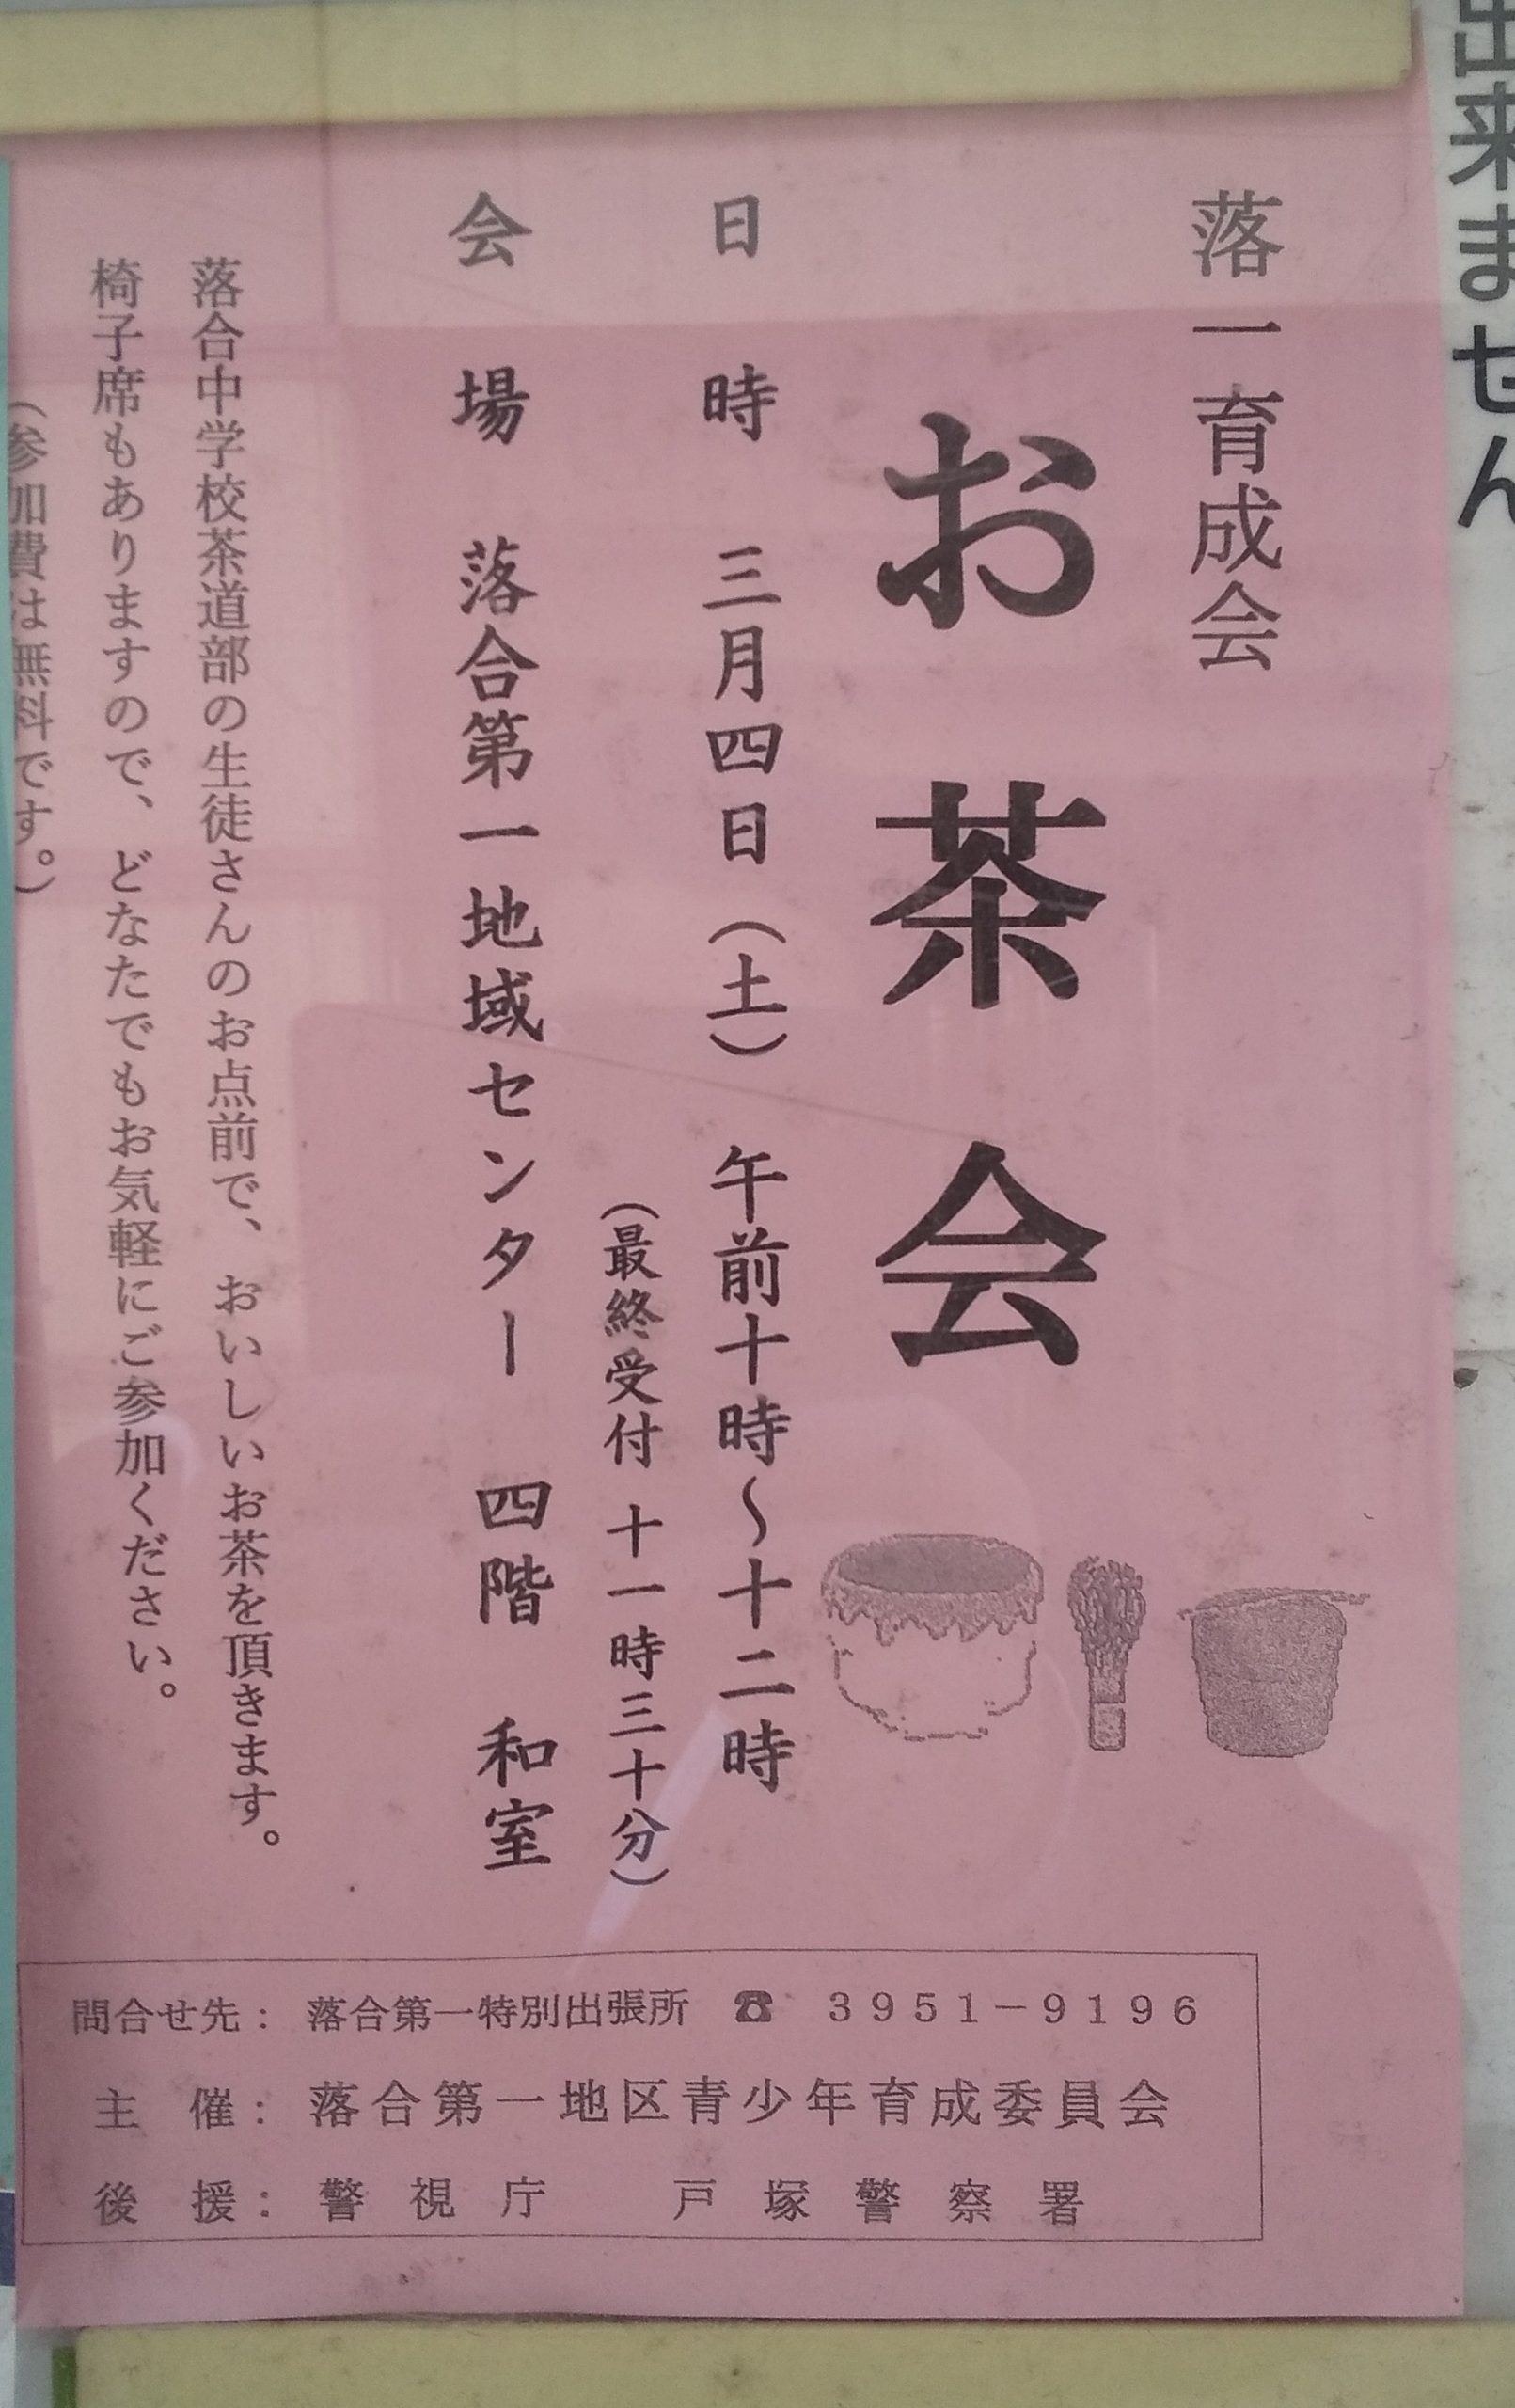 落一育成会
お茶会
日時 三月四日(土) 午前十時〜十二時
(最終受付 十一時三十分)
会場 落合第一地域センター 四階 和室
落合中学校茶道部の生徒さんのお点前で、おいしいお茶を頂きます。
椅子席もありますので、どなたでもお気軽にご参加ください。
(参加費は無料です。)
問合せ先: 落合第一特別出張所 ☎ 3951-9196
主催: 落合第一地区青少年育成委員会
後援: 警視庁 戸塚警察署
出来ません